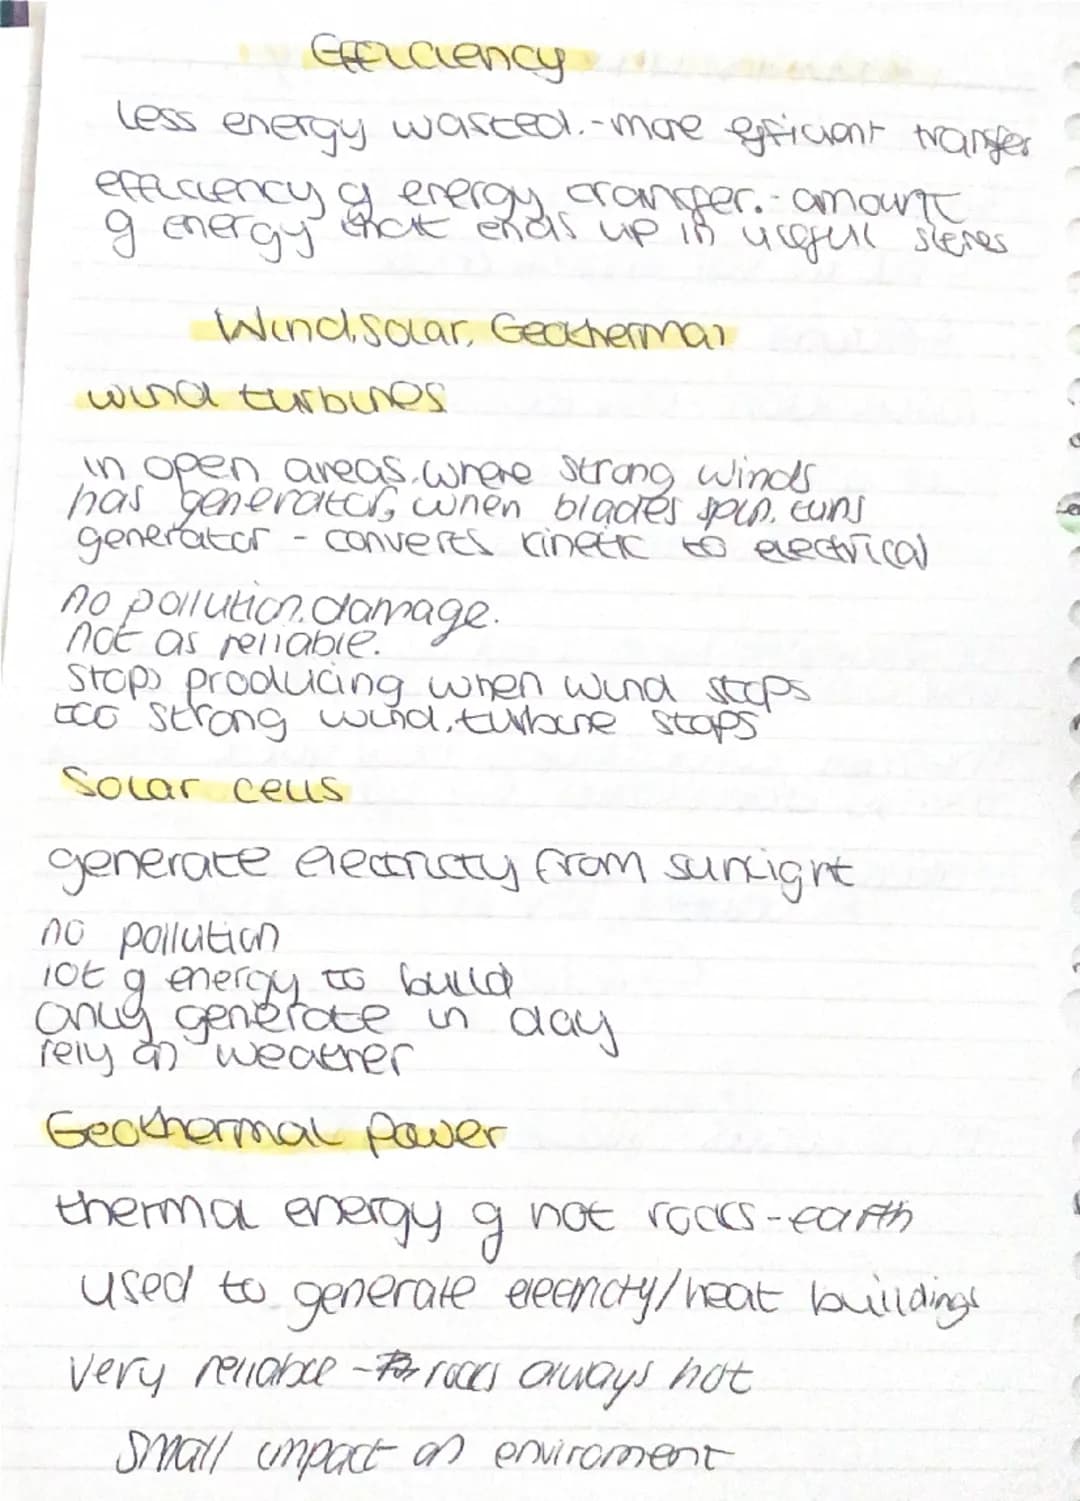 Efficiency
less energy wasted.-more efficient transfer
efficiency of energy transfer.-amount
of energy that ends up in useful stores
Wind, Solar, Geothermal
wind turbines
in open areas, where strong winds
has generator, when blades spin, turns
generator - converts kinetic to electrical
no pollution, damage.
not as reliable.
stops producing when wind stops
too strong wind, turbine stops
Solar cells
generate electricty from sunlight
no pollution
lot of energy to build
only generate in day
rely on weather
Geothermal power
thermal energy of hot rocks-earth
used to generate electricty/heat buildings
very reliable - rocks always hot
small impact on enviroment